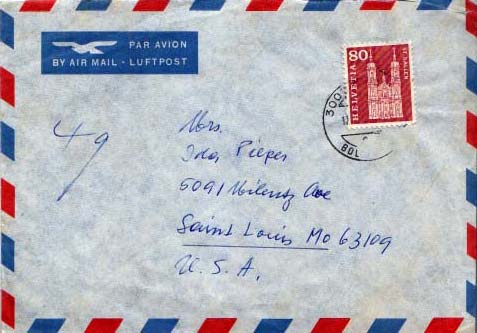 PAR AVION
BY AIR MAIL - LUFTPOST
80
HELVETIA
ST. GALLEN
3001
BOL
4g
Mrs.
Pieper
5091 Ave
Saint Louis Mo 63109
U.S.A.